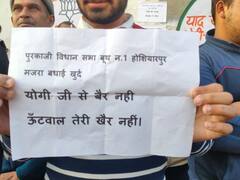 पुरकाजी विधान सभा बूथ न.1 होशियारपुर
मजरा बधाई खुर्द
योगी जी से बैर नही
ऊँटवाल तेरी खैर नहीं।
याद